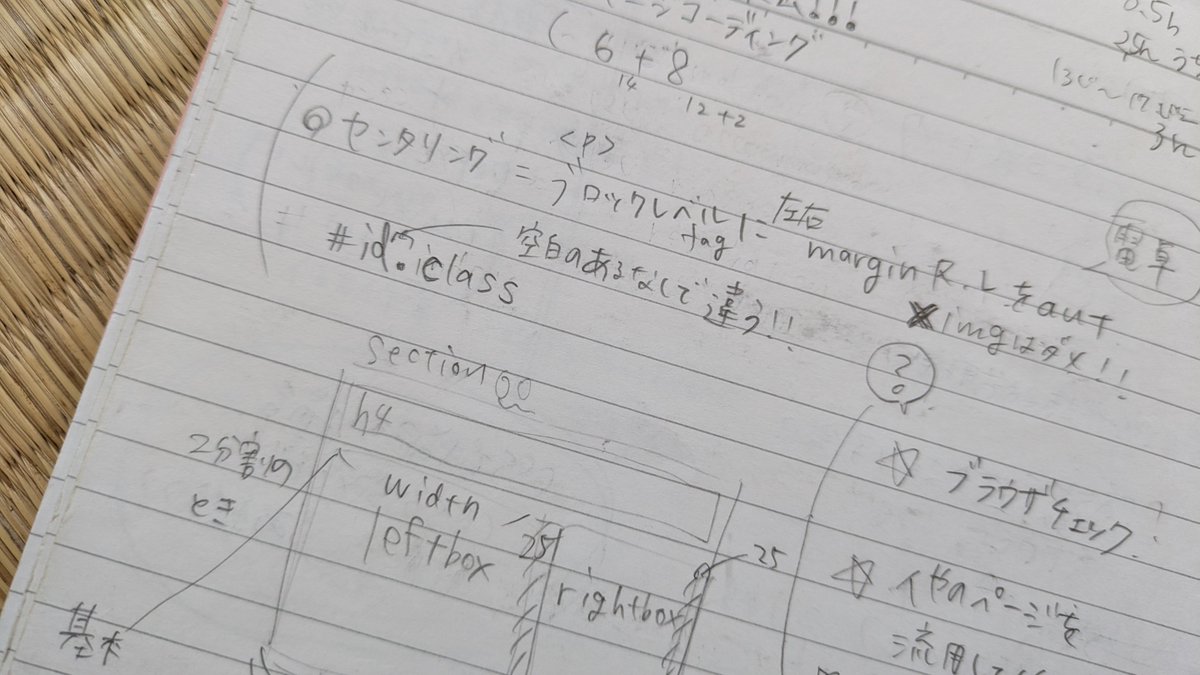 コーディング!!!
0.5h
25h
(6+8
14
12+2
3h
◎センタリング=ブロックレベルに左右margin R.Lをaut
<p>
tag
電卓
×imgはダメ!!
#id.class
空白のあるなしで違う!!
section
?
h4
2分割の
とき
☆ブラウザチェック
width
leftbox
25
rightbox
25
基本
のページを
流用して